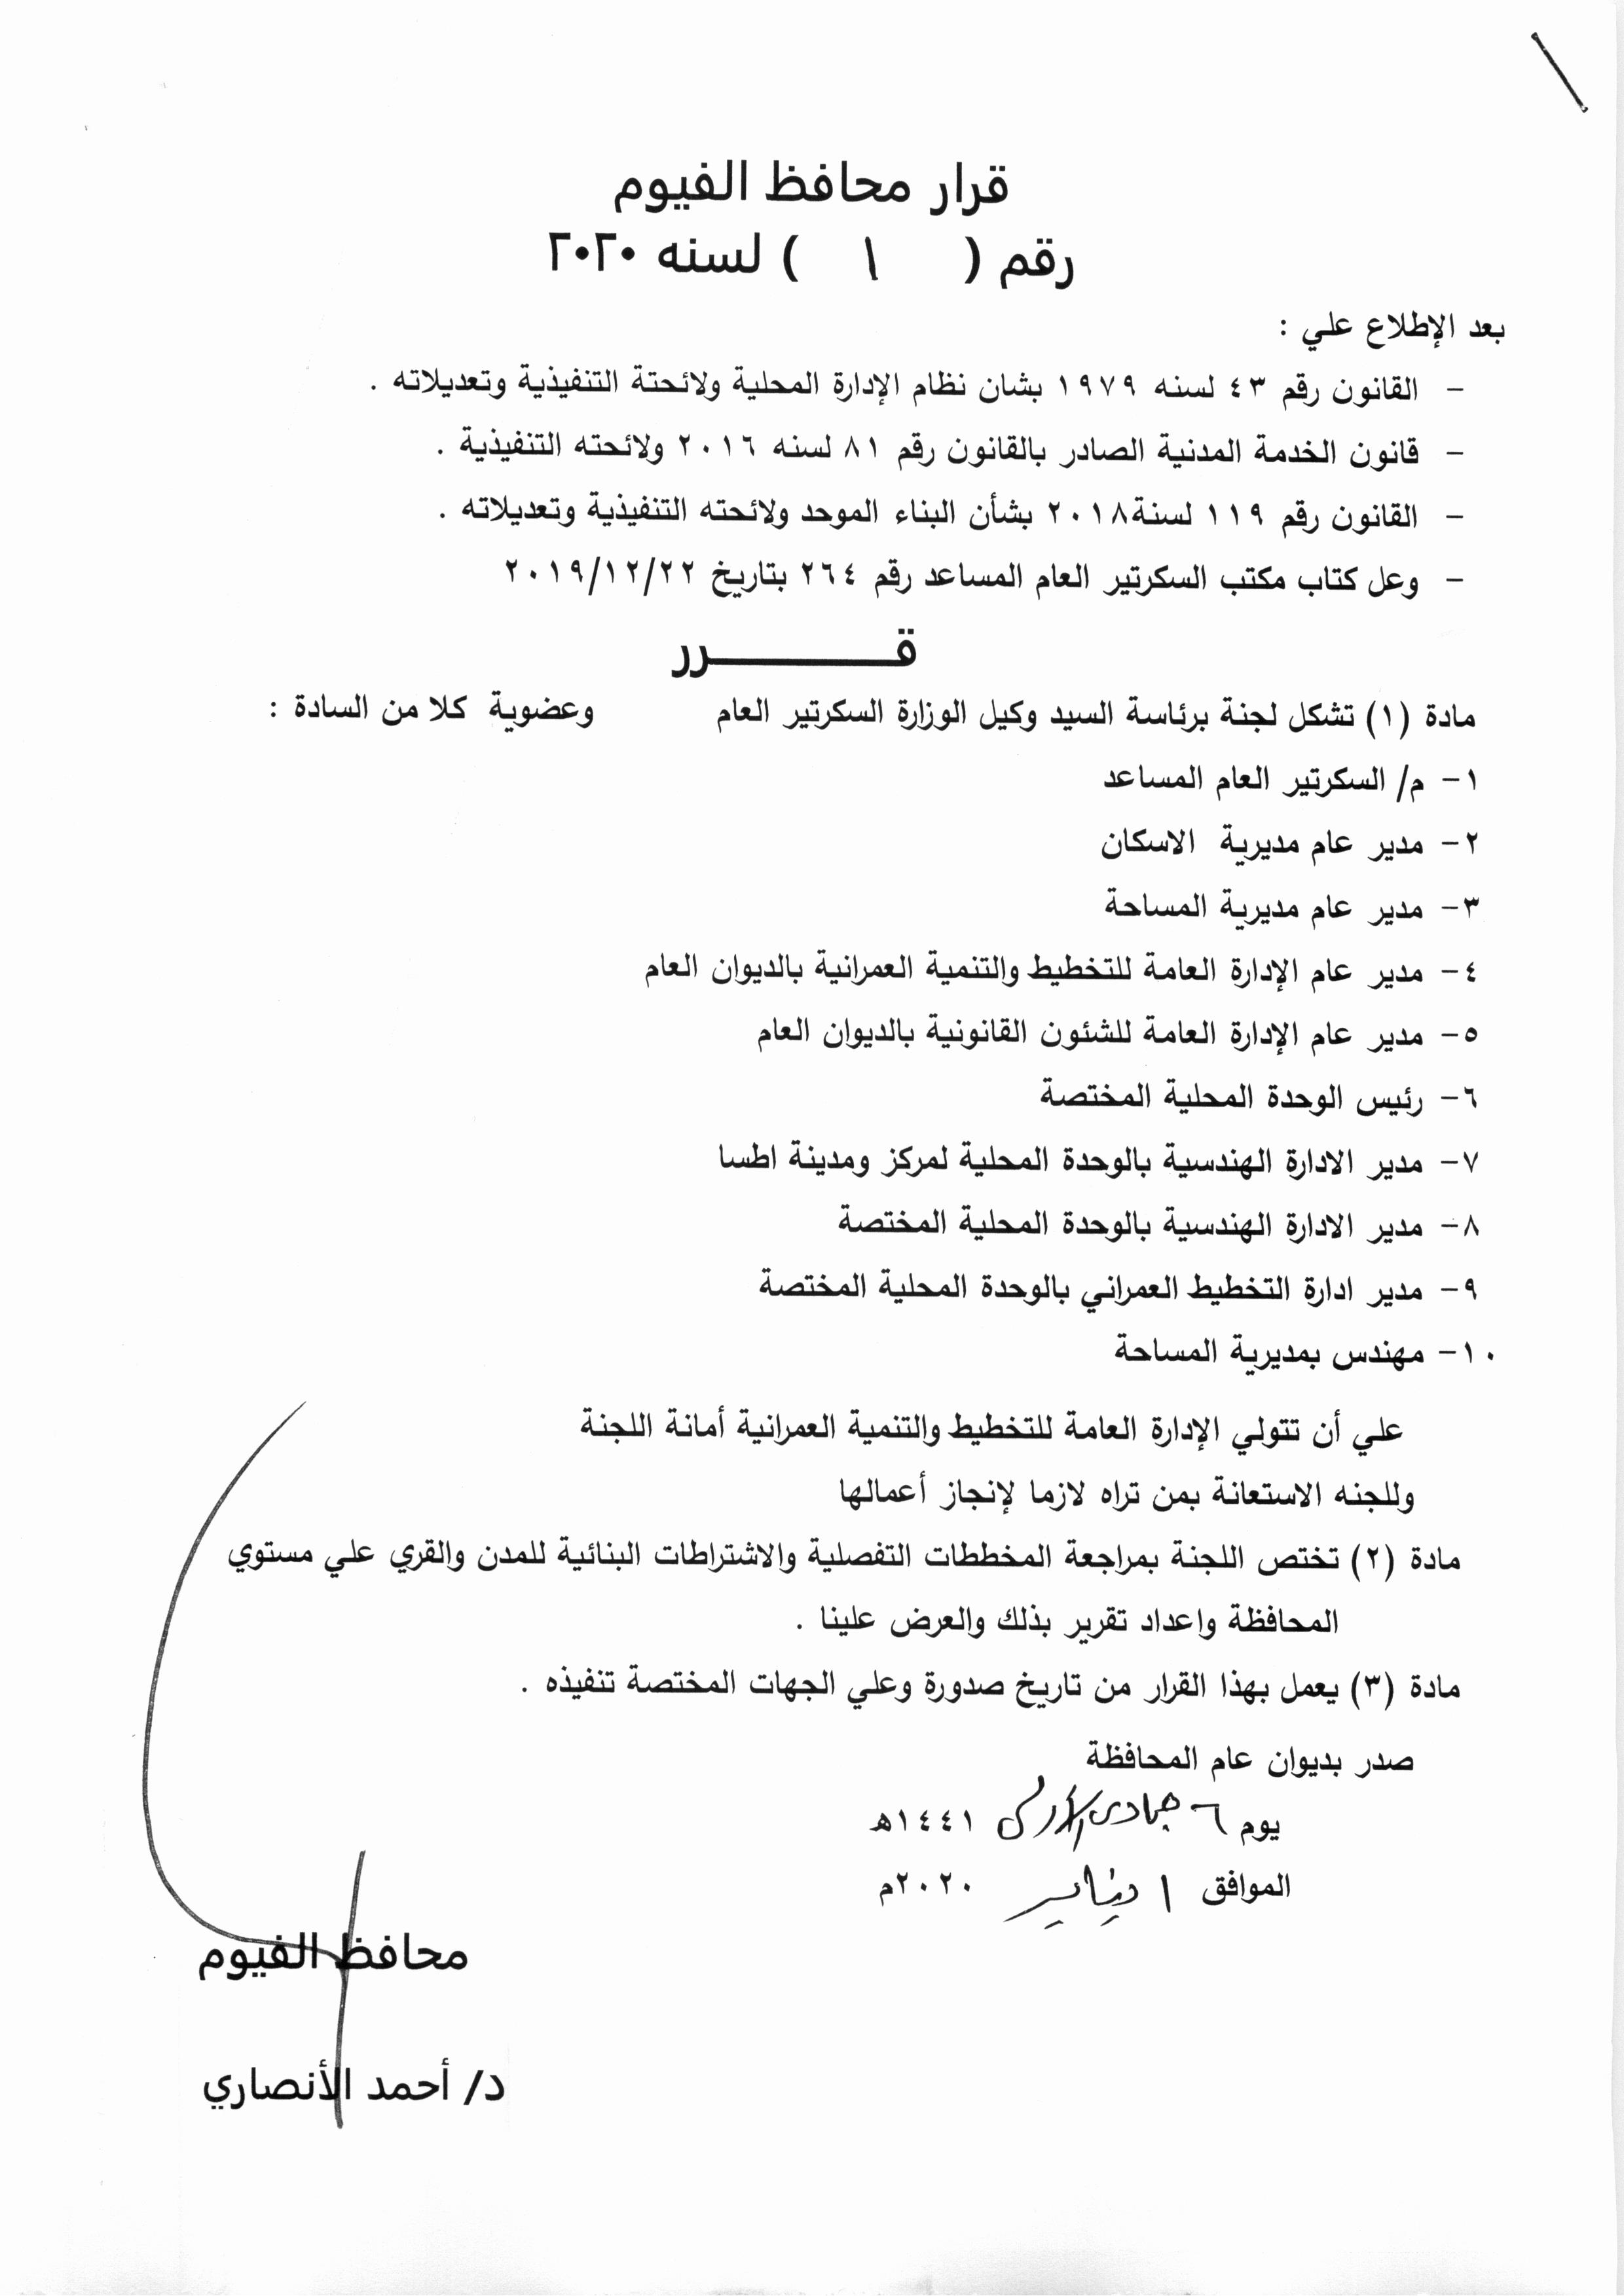 قرار محافظ الفيوم
رقم ( ١ ) لسنه ٢٠٢٠
بعد الإطلاع علي :
- القانون رقم ٤٣ لسنه ١٩٧٩ بشان نظام الإدارة المحلية ولائحتة التنفيذية وتعديلاته .
- قانون الخدمة المدنية الصادر بالقانون رقم ٨١ لسنه ٢٠١٦ ولائحته التنفيذية .
- القانون رقم ١١٩ لسنة٢٠١٨ بشأن البناء الموحد ولائحته التنفيذية وتعديلاته .
- وعل كتاب مكتب السكرتير العام المساعد رقم ٢٦٤ بتاريخ ٢٠١٩/١٢/٢٢
قـــــــــــرر
مادة (١) تشكل لجنة برئاسة السيد وكيل الوزارة السكرتير العام وعضوية كلا من السادة :
١- م/ السكرتير العام المساعد
٢- مدير عام مديرية الاسكان
٣- مدير عام مديرية المساحة
٤- مدير عام الإدارة العامة للتخطيط والتنمية العمرانية بالديوان العام
٥- مدير عام الإدارة العامة للشئون القانونية بالديوان العام
٦- رئيس الوحدة المحلية المختصة
٧- مدير الادارة الهندسية بالوحدة المحلية لمركز ومدينة اطسا
٨- مدير الادارة الهندسية بالوحدة المحلية المختصة
٩- مدير ادارة التخطيط العمراني بالوحدة المحلية المختصة
١٠- مهندس بمديرية المساحة
علي أن تتولي الإدارة العامة للتخطيط والتنمية العمرانية أمانة اللجنة
وللجنه الاستعانة بمن تراه لازما لإنجاز أعمالها
مادة (٢) تختص اللجنة بمراجعة المخططات التفصلية والاشتراطات البنائية للمدن والقري علي مستوي
المحافظة واعداد تقرير بذلك والعرض علينا .
مادة (٣) يعمل بهذا القرار من تاريخ صدورة وعلي الجهات المختصة تنفيذه .
صدر بديوان عام المحافظة
يوم ٦ جمادى الأولى ١٤٤١ه
الموافق ١ يناير ٢٠٢٠م
محافظ الفيوم
د/ أحمد الأنصاري